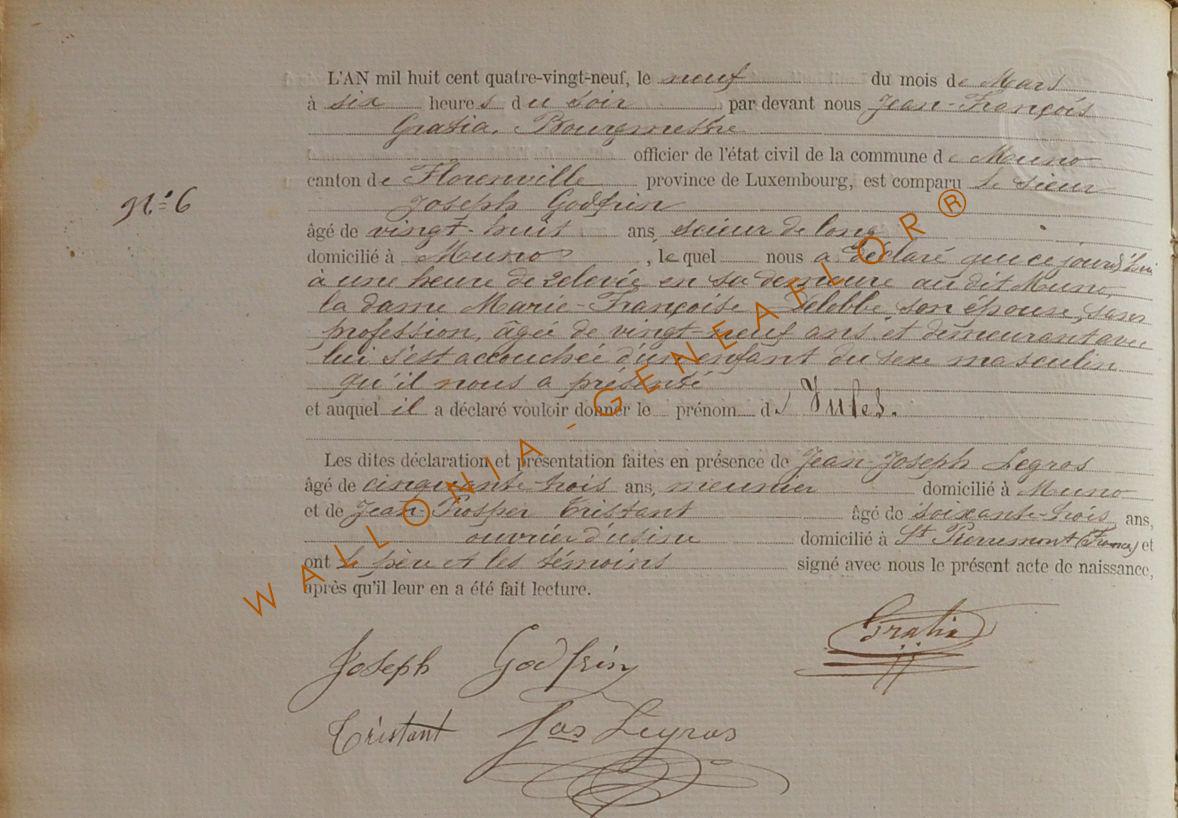 L'AN mil huit cent quatre-vingt-neuf, le neuf du mois de Mars
à six heures du soir par devant nous Jean-François
Gratia, Bourgmestre
officier de l'état civil de la commune de Muno
canton de Florenville province de Luxembourg, est comparu le sieur
Joseph Godfrin
N° 6
âgé de vingt-huit ans, scieur de long
domicilié à Muno, lequel nous a déclaré que ce jourd'hui
à une heure de relevée en sa demeure au dit Muno,
la dame Marie-Françoise son épouse, sans
profession, âgée de vingt-neuf ans et demeurant avec
lui s'est accouchée d'un enfant du sexe masculin
qu'il nous a présenté
et auquel il a déclaré vouloir donner le prénom de Jules.
Les dites déclaration et présentation faites en présence de Jean-Joseph Legros
âgé de cinquante-trois ans, meunier domicilié à Muno
et de Jean-Prosper Tristant âgé de soixante-trois ans,
ouvrier d'usine domicilié à St Pierremont (France) et
ont le père et les témoins signé avec nous le présent acte de naissance,
après qu'il leur en a été fait lecture.
Gratia
Joseph Godfrin
Tristant Jos Legros
WALLONIA-GENEAFLOR®